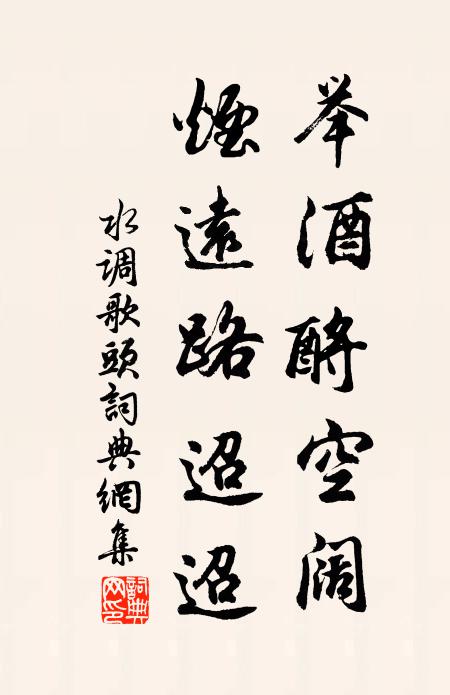 举酒酹空阔
烟遠路迢迢
水调歌頭詞典網集
詞典网印